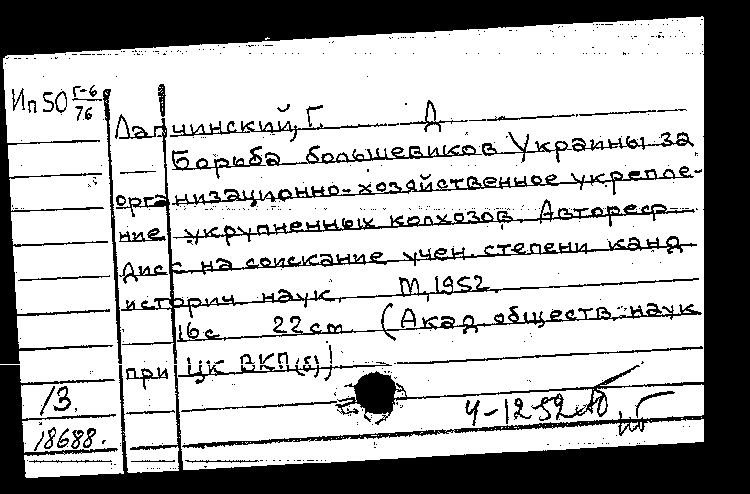 Ип 50 Г-6/76
Лапчинский, Г. Д
Борьба большевиков Украины за
организационно-хозяйственное укрепле-
ние укрупненных колхозов. Автореф
дисс на соискание учен. степени канд
историч. наук. М, 1952.
16с. 22 см. (Акад обществ. наук
при ЦК ВКП(б))
13.
18688.
4-12 52